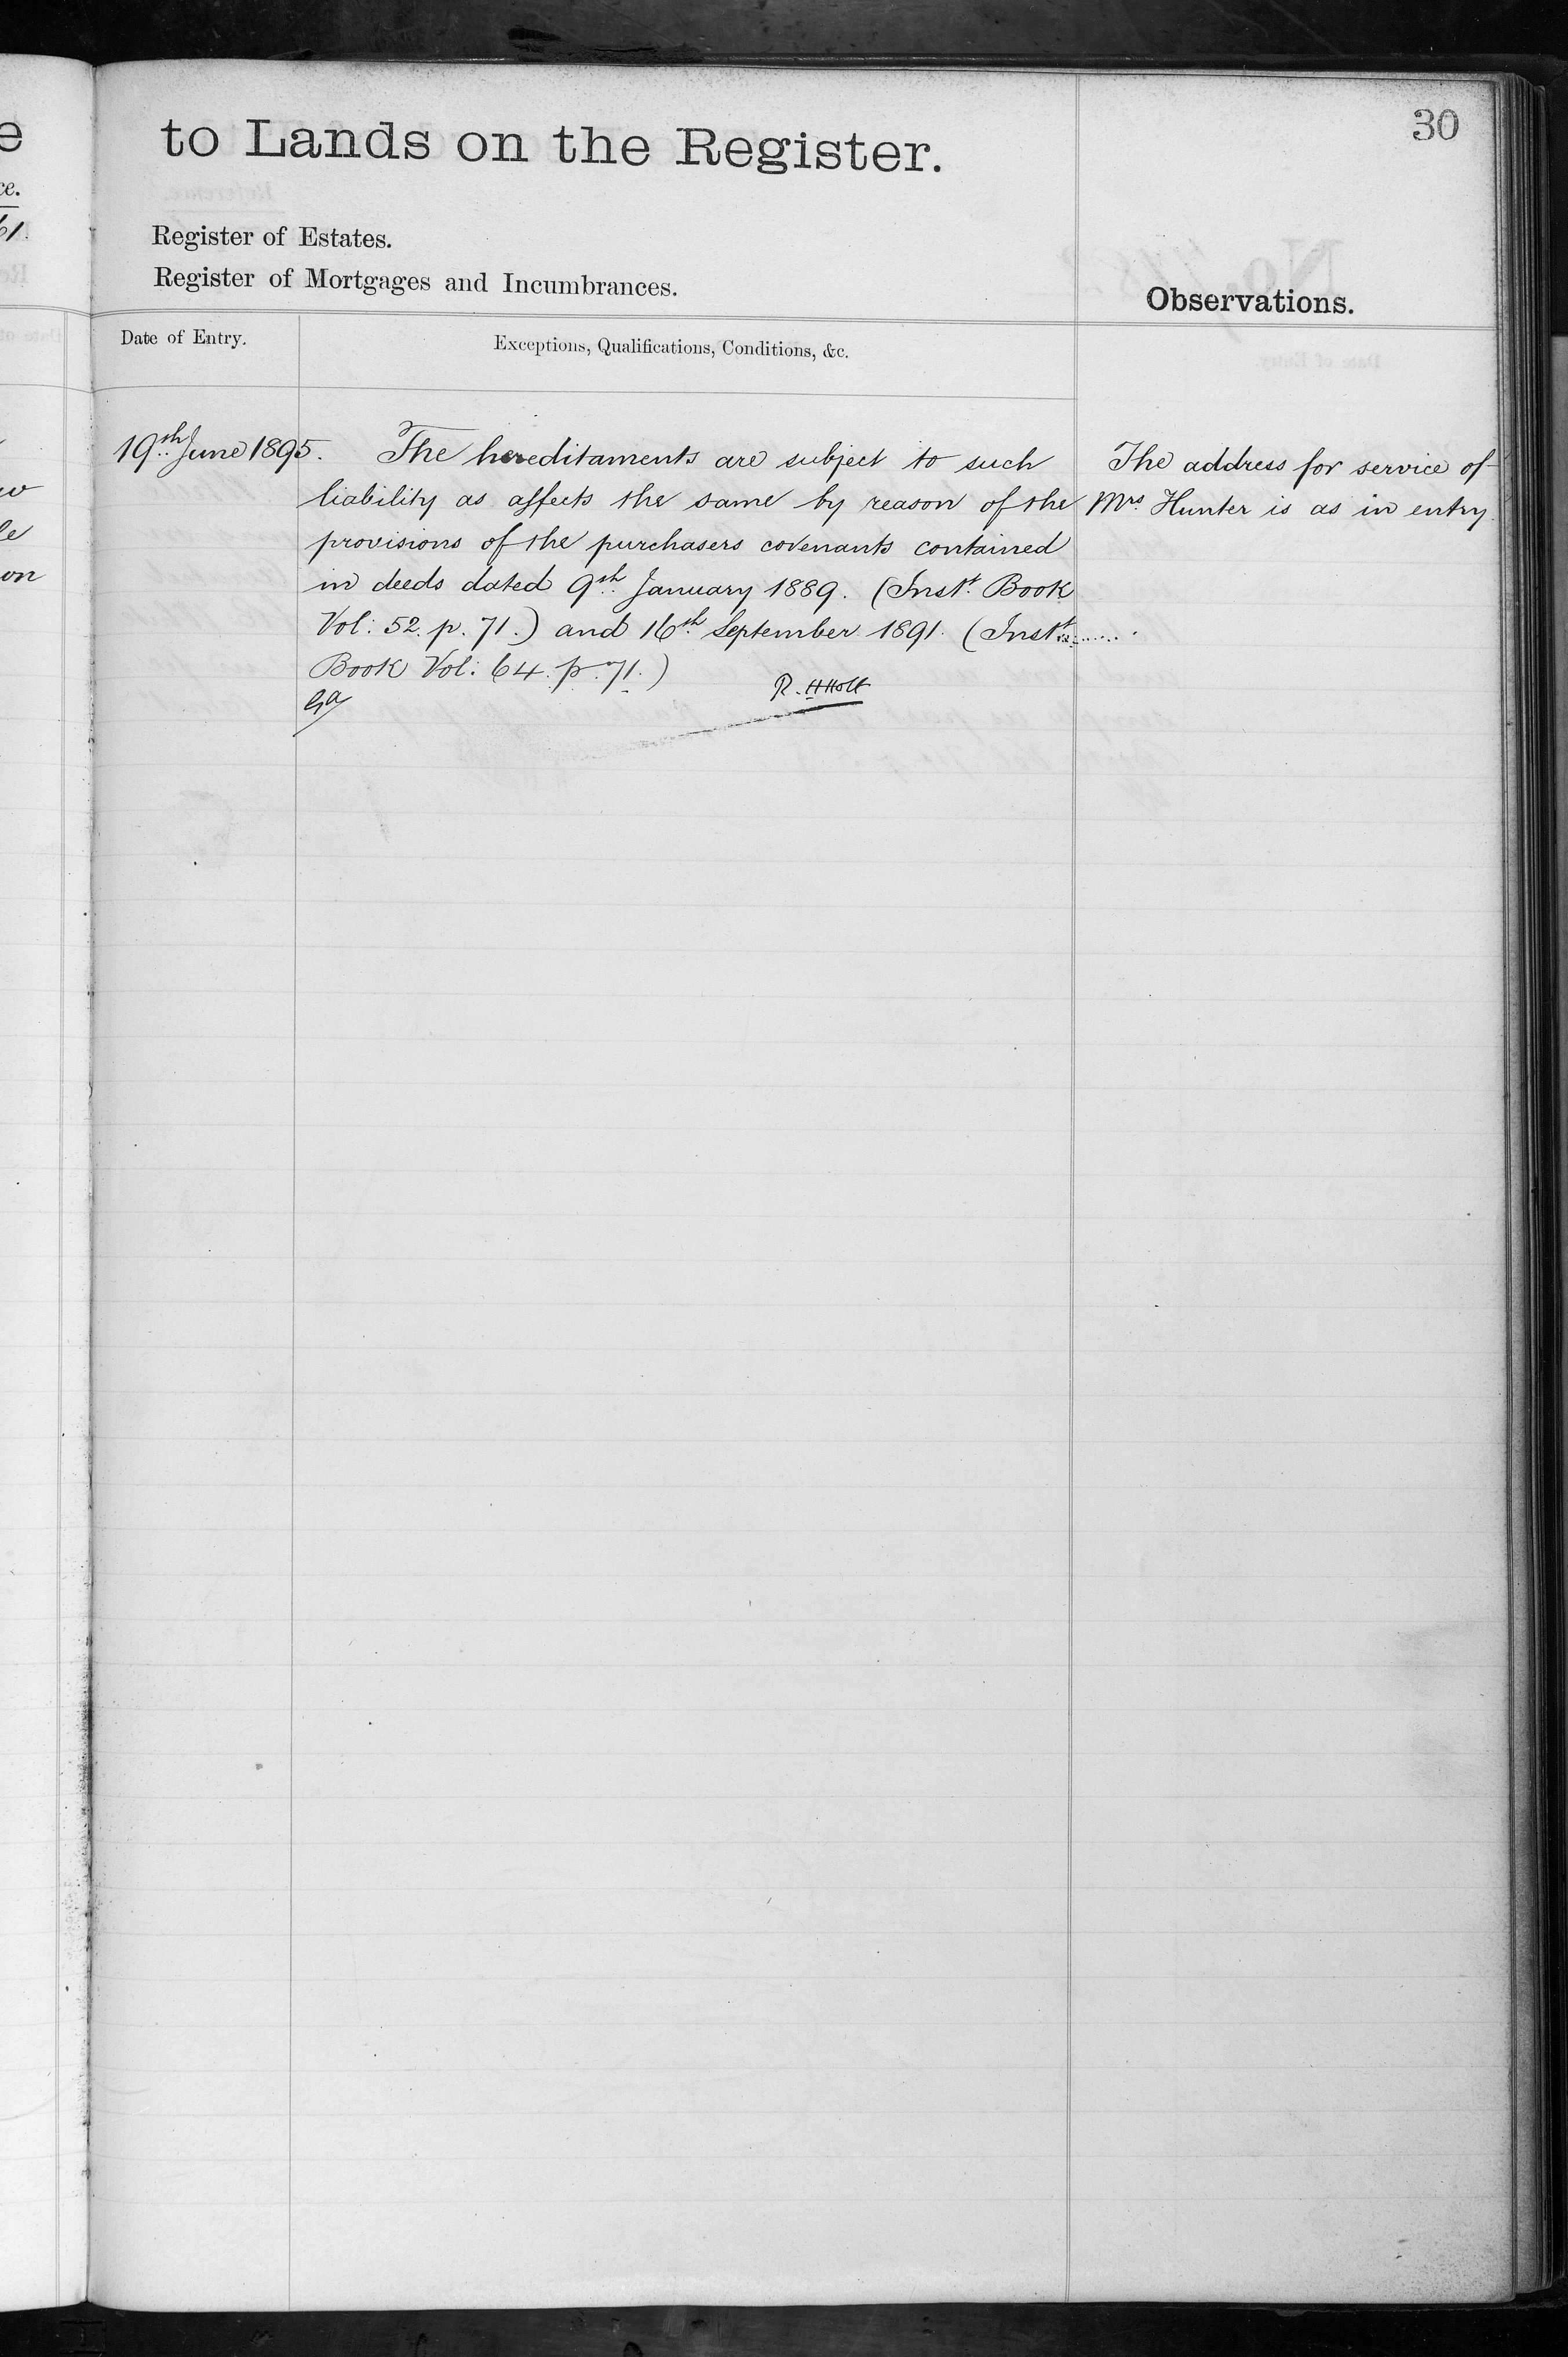 30
to Lands on the Register.
Register of Estates.
Register of Mortgages and Incumbrances.
Observations.
Date of Entry.
Exceptions, Qualifications, Conditions, &c.
19th June 1895.
The hereditaments are subject to such
liability as affects the same by reason of the
provisions of the purchasers covenants contained
in deeds dated 9th January 1889. (Instt. Book
Vol: 52. p. 71.) and 16th September 1891. (Instt.
Book Vol: 64. p. 71.)
R. H Holt
The address for service of
Mrs. Hunter is as in entry.